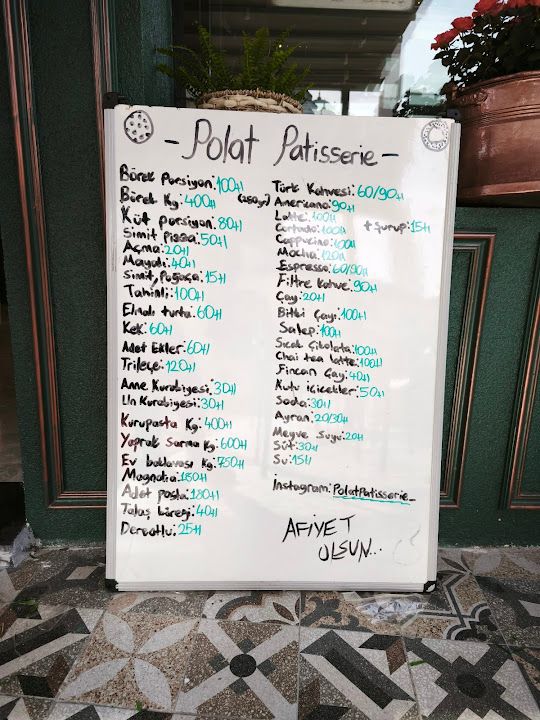 - Polat Patisserie -
Börek Porsiyon: 100tl
Börek Kg: 400tl
Küt porsiyon: 80tl
Simit pizza: 50tl
Açma: 20tl
Mayalı: 40tl
Simit, Poğaça: 15tl
Tahinli: 100tl
Elmalı turta: 60tl
Kek: 60tl
Adet Ekler: 60tl
Trileçe: 120tl
Anne Kurabiyesi: 30tl
Un Kurabiyesi: 30tl
Kurupasta Kg: 400tl
Yaprak Sarma Kg: 600tl
Ev baklavası Kg: 750tl
Magnolia: 150tl
Adet pasta: 180tl
Talaş böreği: 40tl
Dereotlu: 25tl
Türk Kahvesi: 60/90tl
Americano: 90tl
Latte: 100tl
+ Şurup: 15tl
Cortado: 100tl
Cappucino: 100tl
Mocha: 120tl
Espresso: 60/90tl
Filtre Kahve: 90tl
Çay: 20tl
Bitki Çayı: 100tl
Salep: 100tl
Sıcak Çikolata: 100tl
Chai tea latte: 100tl
Fincan Çay: 40tl
Kutu içicekler: 50tl
Soda: 30tl
Ayran: 20/30tl
Meyve Suyu: 20tl
Süt: 30tl
Su: 15tl
İnstagram: PolatPatisserie_
AFİYET
OLSUN...